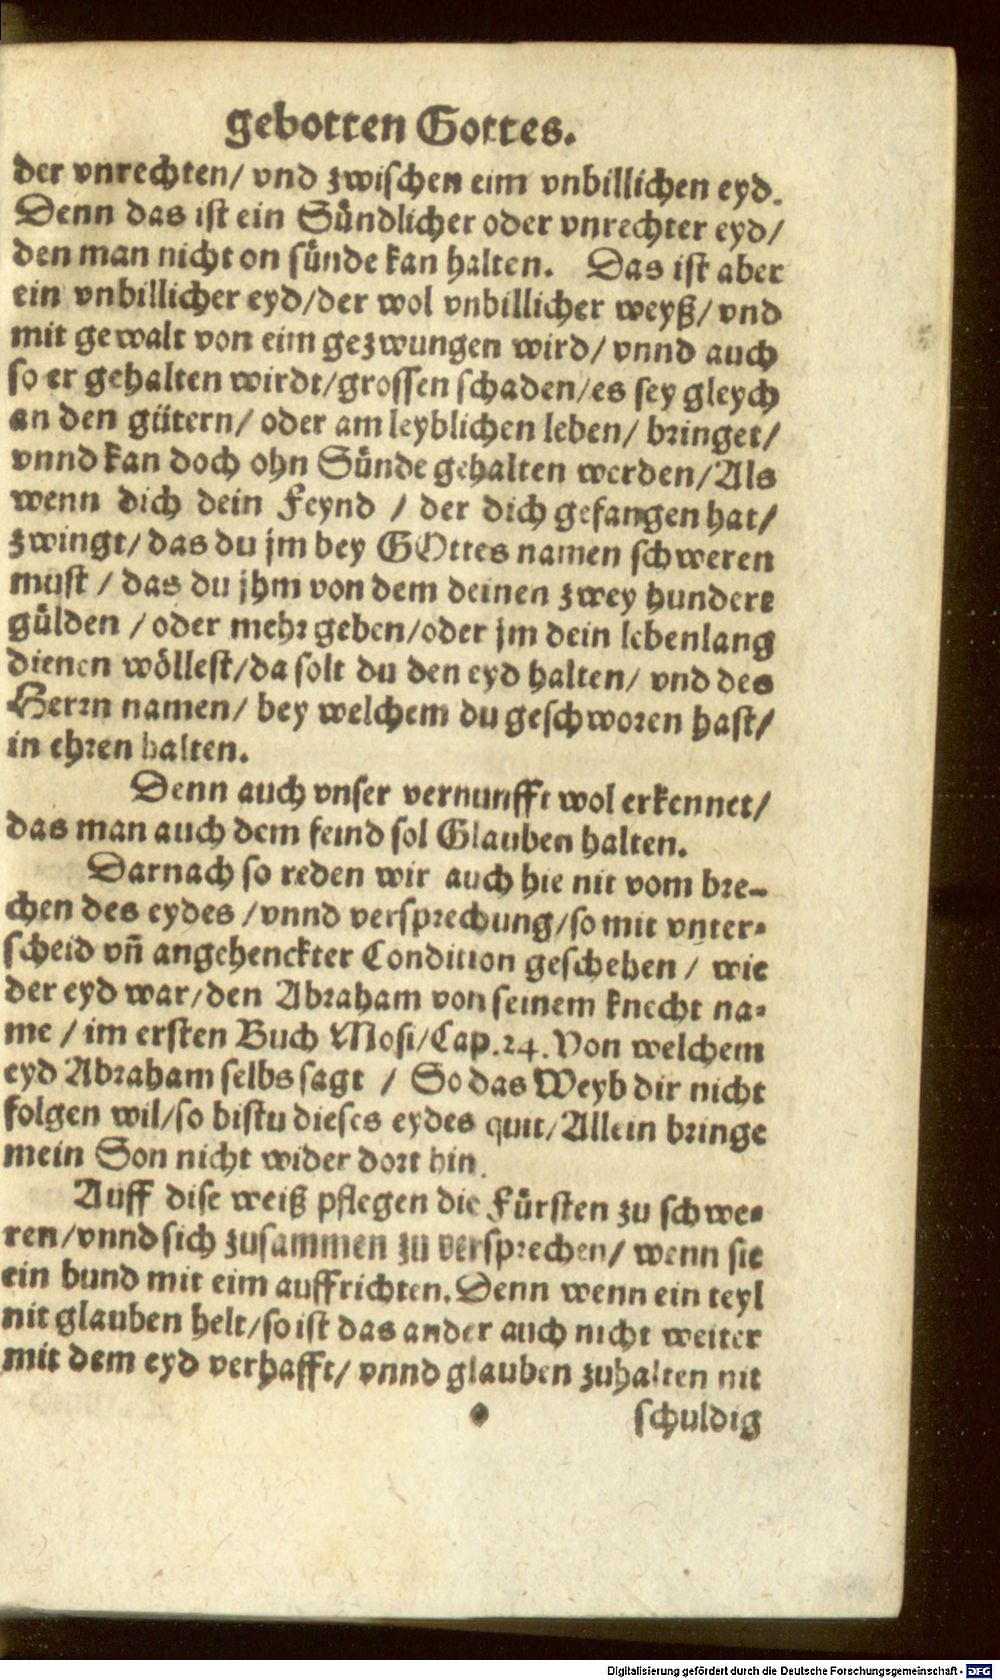 gebotten Gottes.
der vnrechten/ vnd zwischen eim vnbillichen eyd.
Denn das ist ein Sündlicher oder vnrechter eyd/
den man nicht on sünde kan halten. Das ist aber
ein vnbillicher eyd/der wol vnbillicher weyß/ vnd
mit gewalt von eim gezwungen wird/ vnnd auch
so er gehalten wirdt/grossen schaden/es sey gleych
an den gütern/ oder am leyblichen leben/ bringet/
vnnd kan doch ohn Sünde gehalten werden/Als
wenn dich dein Feynd / der dich gefangen hat/
zwingt/ das du jm bey GOttes namen schweren
must / das du jhm von dem deinen zwey hundert
gülden / oder mehr geben/oder jm dein lebenlang
dienen wöllest/da solt du den eyd halten/ vnd des
Herrn namen/ bey welchem du geschworen hast/
in ehren halten.
Denn auch vnser vernunfft wol erkennet/
das man auch dem feind sol Glauben halten.
Darnach so reden wir auch hie nit vom bre-
chen des eydes /vnnd versprechung/so mit vnter-
scheid vñ angehenckter Condition geschehen / wie
der eyd war/den Abraham von seinem knecht na-
me / im ersten Buch Mosi/Cap.24.Von welchem
eyd Abraham selbs sagt / So das Weyb dir nicht
folgen wil/so bistu dieses eydes quit/Allein bringe
mein Son nicht wider dort hin.
Auff dise weiß pflegen die Fürsten zu schwe-
ren/vnnd sich zusammen zu versprechen/ wenn sie
ein bund mit eim auffrichten.Denn wenn ein teyl
nit glauben helt/so ist das ander auch nicht weiter
mit dem eyd verhafft/ vnnd glauben zuhalten nit
schuldig
Digitalisierung gefördert durch die Deutsche Forschungsgemeinschaft - DFG